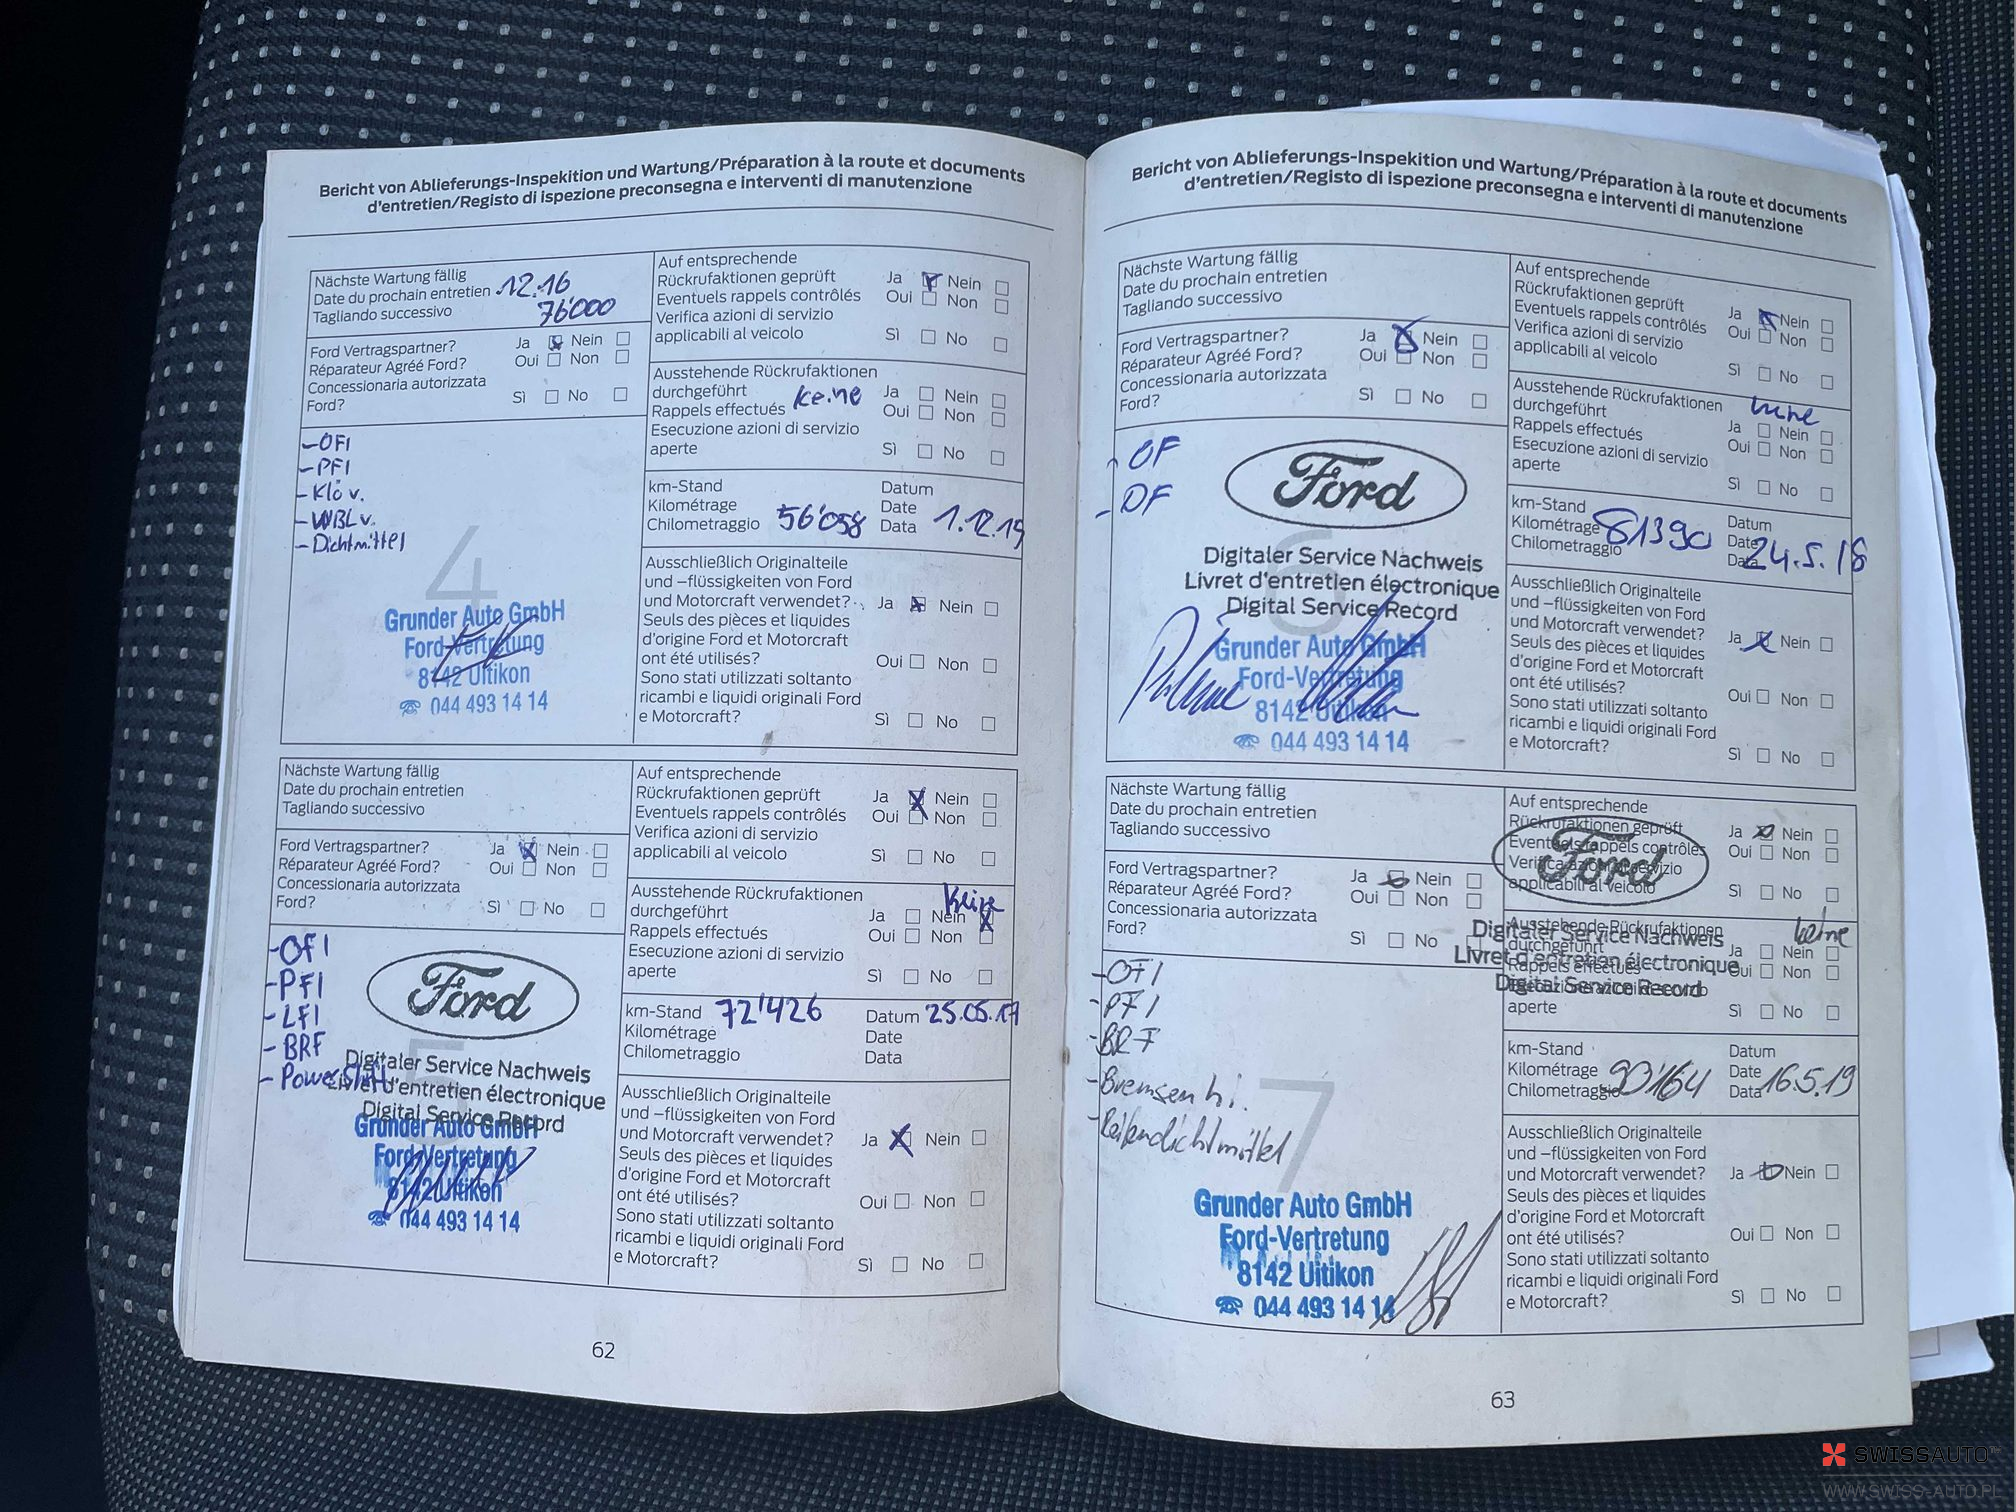 Bericht von Ablieferungs-Inspekition und Wartung/Préparation à la route et documents
d'entretien/Registo di ispezione preconsegna e interventi di manutenzione
Nächste Wartung fällig
Date du prochain entretien 12.16
Tagliando successivo 76'000
Ford Vertragspartner? Ja Nein
Réparateur Agréé Ford? Oui Non
Concessionaria autorizzata
Ford? Sì No
- OFI
- PFI
- Klö v.
- WBL v.
- Dichtmittel
4
Grunder Auto GmbH
Ford-Vertretung
8142 Uitikon
☎ 044 493 14 14
Auf entsprechende
Rückrufaktionen geprüft Ja Nein
Eventuels rappels contrôlés Oui Non
Verifica azioni di servizio
applicabili al veicolo Sì No
Ausstehende Rückrufaktionen
durchgeführt keine Ja Nein
Rappels effectués Oui Non
Esecuzione azioni di servizio
aperte Sì No
km-Stand Datum
Kilométrage Date
Chilometraggio 56'058 Data 1.12.15
Ausschließlich Originalteile
und –flüssigkeiten von Ford
und Motorcraft verwendet? Ja Nein
Seuls des pièces et liquides
d'origine Ford et Motorcraft
ont été utilisés? Oui Non
Sono stati utilizzati soltanto
ricambi e liquidi originali Ford
e Motorcraft? Sì No
Nächste Wartung fällig
Date du prochain entretien
Tagliando successivo
Ford Vertragspartner? Ja Nein
Réparateur Agréé Ford? Oui Non
Concessionaria autorizzata
Ford? Sì No
- OFI
- PFI
- LFI
- BRF
- PowerShift
5
Ford
Digitaler Service Nachweis
Livret d'entretien électronique
Digital Service Record
Grunder Auto GmbH
Ford-Vertretung
8142 Uitikon
☎ 044 493 14 14
Auf entsprechende
Rückrufaktionen geprüft Ja Nein
Eventuels rappels contrôlés Oui Non
Verifica azioni di servizio
applicabili al veicolo Sì No
Ausstehende Rückrufaktionen Keine
durchgeführt Ja Nein
Rappels effectués Oui Non
Esecuzione azioni di servizio
aperte Sì No
km-Stand 72'426 Datum 25.05.17
Kilométrage Date
Chilometraggio Data
Ausschließlich Originalteile
und –flüssigkeiten von Ford
und Motorcraft verwendet? Ja Nein
Seuls des pièces et liquides
d'origine Ford et Motorcraft
ont été utilisés? Oui Non
Sono stati utilizzati soltanto
ricambi e liquidi originali Ford
e Motorcraft? Sì No
62
Bericht von Ablieferungs-Inspekition und Wartung/Préparation à la route et documents
d'entretien/Registo di ispezione preconsegna e interventi di manutenzione
Nächste Wartung fällig
Date du prochain entretien
Tagliando successivo
Ford Vertragspartner? Ja Nein
Réparateur Agréé Ford? Oui Non
Concessionaria autorizzata
Ford? Sì No
- OF
- DF
6
Ford
Digitaler Service Nachweis
Livret d'entretien électronique
Digital Service Record
Grunder Auto GmbH
Ford-Vertretung
8142 Uitikon
☎ 044 493 14 14
Auf entsprechende
Rückrufaktionen geprüft Ja Nein
Eventuels rappels contrôlés Oui Non
Verifica azioni di servizio
applicabili al veicolo Sì No
Ausstehende Rückrufaktionen keine
durchgeführt Ja Nein
Rappels effectués Oui Non
Esecuzione azioni di servizio
aperte Sì No
km-Stand Datum
Kilométrage 81390 Date
Chilometraggio Data 24.5.18
Ausschließlich Originalteile
und –flüssigkeiten von Ford
und Motorcraft verwendet? Ja Nein
Seuls des pièces et liquides
d'origine Ford et Motorcraft
ont été utilisés? Oui Non
Sono stati utilizzati soltanto
ricambi e liquidi originali Ford
e Motorcraft? Sì No
Nächste Wartung fällig
Date du prochain entretien
Tagliando successivo
Ford Vertragspartner? Ja Nein
Réparateur Agréé Ford? Oui Non
Concessionaria autorizzata
Ford? Sì No
- OFI
- PFI
- BRF
- Bremsen hi.
- Reifendichtmittel
7
Grunder Auto GmbH
Ford-Vertretung
8142 Uitikon
☎ 044 493 14 14
Auf entsprechende
Rückrufaktionen geprüft Ja Nein
Eventuels rappels contrôlés Oui Non
Verifica azioni di servizio
applicabili al veicolo Sì No
Ford
Digitaler Service Nachweis
Livret d'entretien électronique
Digital Service Record
Ausstehende Rückrufaktionen keine
durchgeführt Ja Nein
Rappels effectués Oui Non
aperte Sì No
km-Stand Datum
Kilométrage 90'164 Date
Chilometraggio Data 16.5.19
Ausschließlich Originalteile
und –flüssigkeiten von Ford
und Motorcraft verwendet? Ja Nein
Seuls des pièces et liquides
d'origine Ford et Motorcraft
ont été utilisés? Oui Non
Sono stati utilizzati soltanto
ricambi e liquidi originali Ford
e Motorcraft? Sì No
63
SWISSAUTO
WWW.SWISS-AUTO.PL